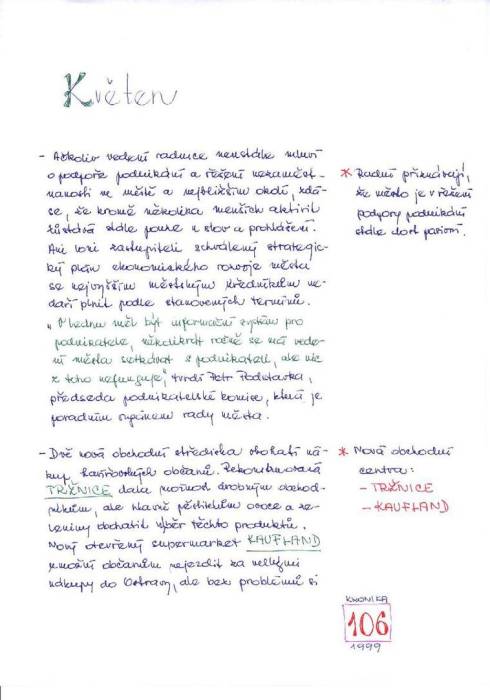 Květen
- Ačkoliv vedení radnice neustále mluví
o podpoře podnikání a řešení nezaměst-
nanosti ve městě a nejbližším okolí, zdá
se, že kromě několika menších aktivit
zůstává stále pouze u slov a prohlášení.
Ani loni zastupiteli schválený strategic-
ký plán ekonomického rozvoje města
se nejvyšším městským úředníkům ne-
daří plnit podle stanovených termínů.
„V lednu měl být informační systém pro
podnikatele, několikrát ročně se má vede-
ní města setkávat s podnikateli, ale nic
z toho nefunguje," tvrdí Petr Podstavka,
předseda podnikatelské komice, která je
poradním orgánem rady města.
* Radní přiznávají,
že město je v řešení
podpory podnikání
stále dost pasivní.
- Dvě nová obchodní střediska obohatí ná-
kup havířovských občanů. Rekonstruovaná
TRŽNICE dala možnost drobným obchod-
níkům, ale hlavně pěstitelům ovoce a ze-
leniny obohatit výběr těchto produktů.
Nový otevřený supermarket KAUFLAND
umožní občanům nejezdit za velkými
nákupy do Ostravy, ale bez problémů si
* Nová obchodní
centra:
- TRŽNICE
- KAUFLAND
KRONIKA
106
1999